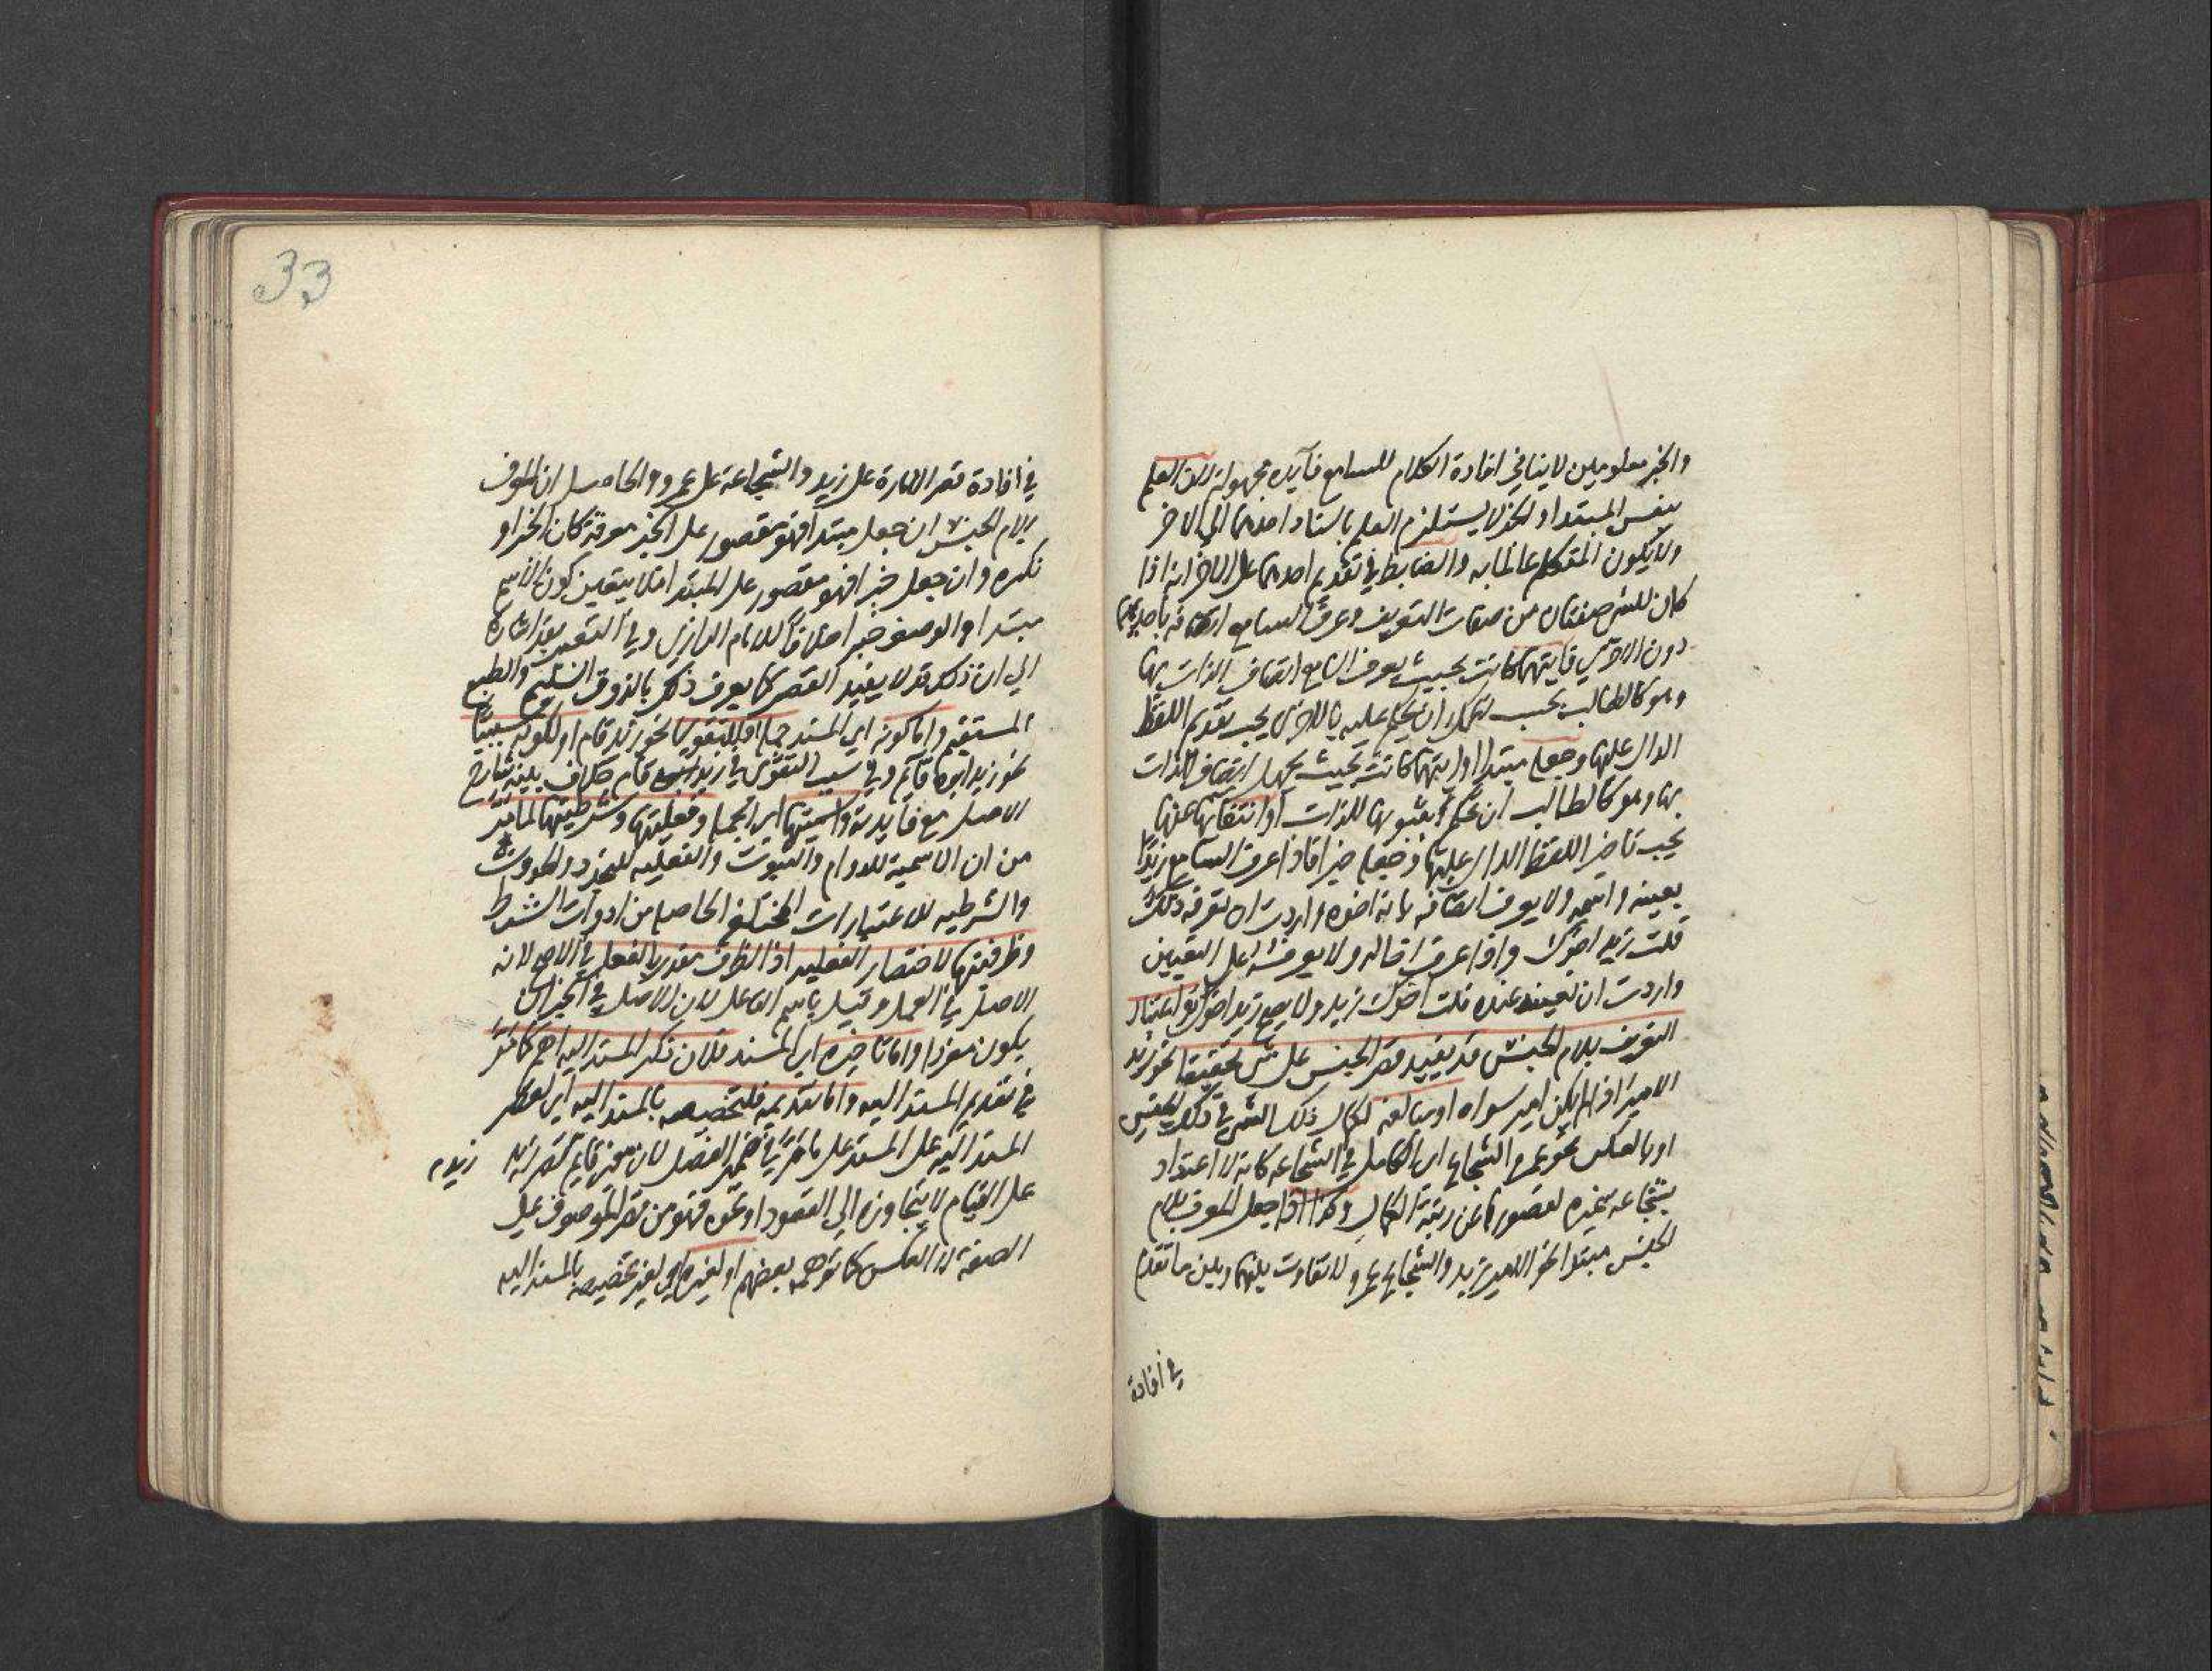 والخبر معلومين لا ينافي افادة الكلام للسامع فائدة مجهولة لان العلم
بنفس المبتدا والخبر لا يستلزم العلم باسناد احدهما الي الاخر
ولا يكون المتكلم عالما به والضابط في تقديم احدهما على الاخر انه اذا
كان للشي صفتان من صفات التعريف وعرف السامع اتصافه باحديهما
دون الاخرى فايتهما كانت بحيث يعرف السامع اتصاف الذات بها
وهو كالطالب بحسب زعمك ان تحكم عليه بالاخرى يجب تقديم اللفظ
الدال عليها وجعله مبتدا وايتهما كانت بحيث يجهل اتصاف الذات
بها وهو كالطالب ان تحكم بثبوتها للذات او انتفائها عنها
يجب تاخير اللفظ الدال عليها وجعله خبرا فاذا عرف السامع زيدا
بعينه واسمه ولا يعرف اتصافه بانه اخوه واردت ان تعرفه ذلك
قلت زيد اخوك واذا عرف اخا له ولا يعرفه على التعيين
واردت ان تعينه عنده قلت اخوك زيد ولا يصح زيد اخوك واعتبار
التعريف بلام الجنس قد يفيد قصر الجنس على شي تحقيقا نحو زيد
الامير اذا لم يكن امير سواه او مبالغة لكمال ذلك الشي في ذلك الجنس
او بالعكس نحو عمرو الشجاع اي الكامل في الشجاعه كانه لا اعتداد
بشجاعه غيره لقصورها عن رتبة الكمال وكذا اذا جعل المعرف بلام
الجنس مبتدا نحو الامير زيد والشجاع عمرو ولا تفاوت بينهما وبين ما تقدم
في افادة
33
في افادة قصر الامارة على زيد والشجاعة على عمرو والحاصل ان المعرف
بلام الجنس ان جعل مبتدا فهو مقصور على الخبر معرفة كان الخبر او
نكره وان جعل خبرا فهو مقصور على المبتدا فلا يتعين كون الاسم
مبتدا والوصف خبرا خلافا للامام الرازي وفي التعبير بقد اشارة
الي ان ذلك قد لا يفيد القصر كما يعرف ذلك بالذوق السليم والطبع
المستقيم واما كونه اي المسند جملة فللتقوي نحو زيد قام او لكونه سببيا
نحو زيد ابوه قايم وفي سبب التقوي في زيد قام خلاف بينته في شارح
الاصل مع فايدته واسميتها اي الجملة وفعليتها وشرطيتها لما مر
من ان الاسمية للدوام والثبوت والفعليه للتجدد والحدوث
والشرطيه للاعتبارات المختلفه الحاصلة من ادوات الشرط
وظرفيتها لاختصار الفعليه اذ الظرف مقدر بالفعل في الاصح لانه
الاصل في العمل وقيل باسم الفاعل لان الاصل في الخبر ان
يكون مفردا واما تاخيره اي المسند فلان ذكر المسند اليه اهم كما مر
في تقديم المسند اليه واما تقديمه فلتخصيصه بالمسند اليه اي لقصر
المسند اليه على المسند على ما مر في ضمير الفصل لان معنى قايم زيد قصر زيد
على القيام لا يتجاوزه الي القعود او نحوه فهو من قصر الموصوف على
الصفة لا العكس كما توهمه بعضهم او لغيره اي لغير تخصيصه بالمسند اليه